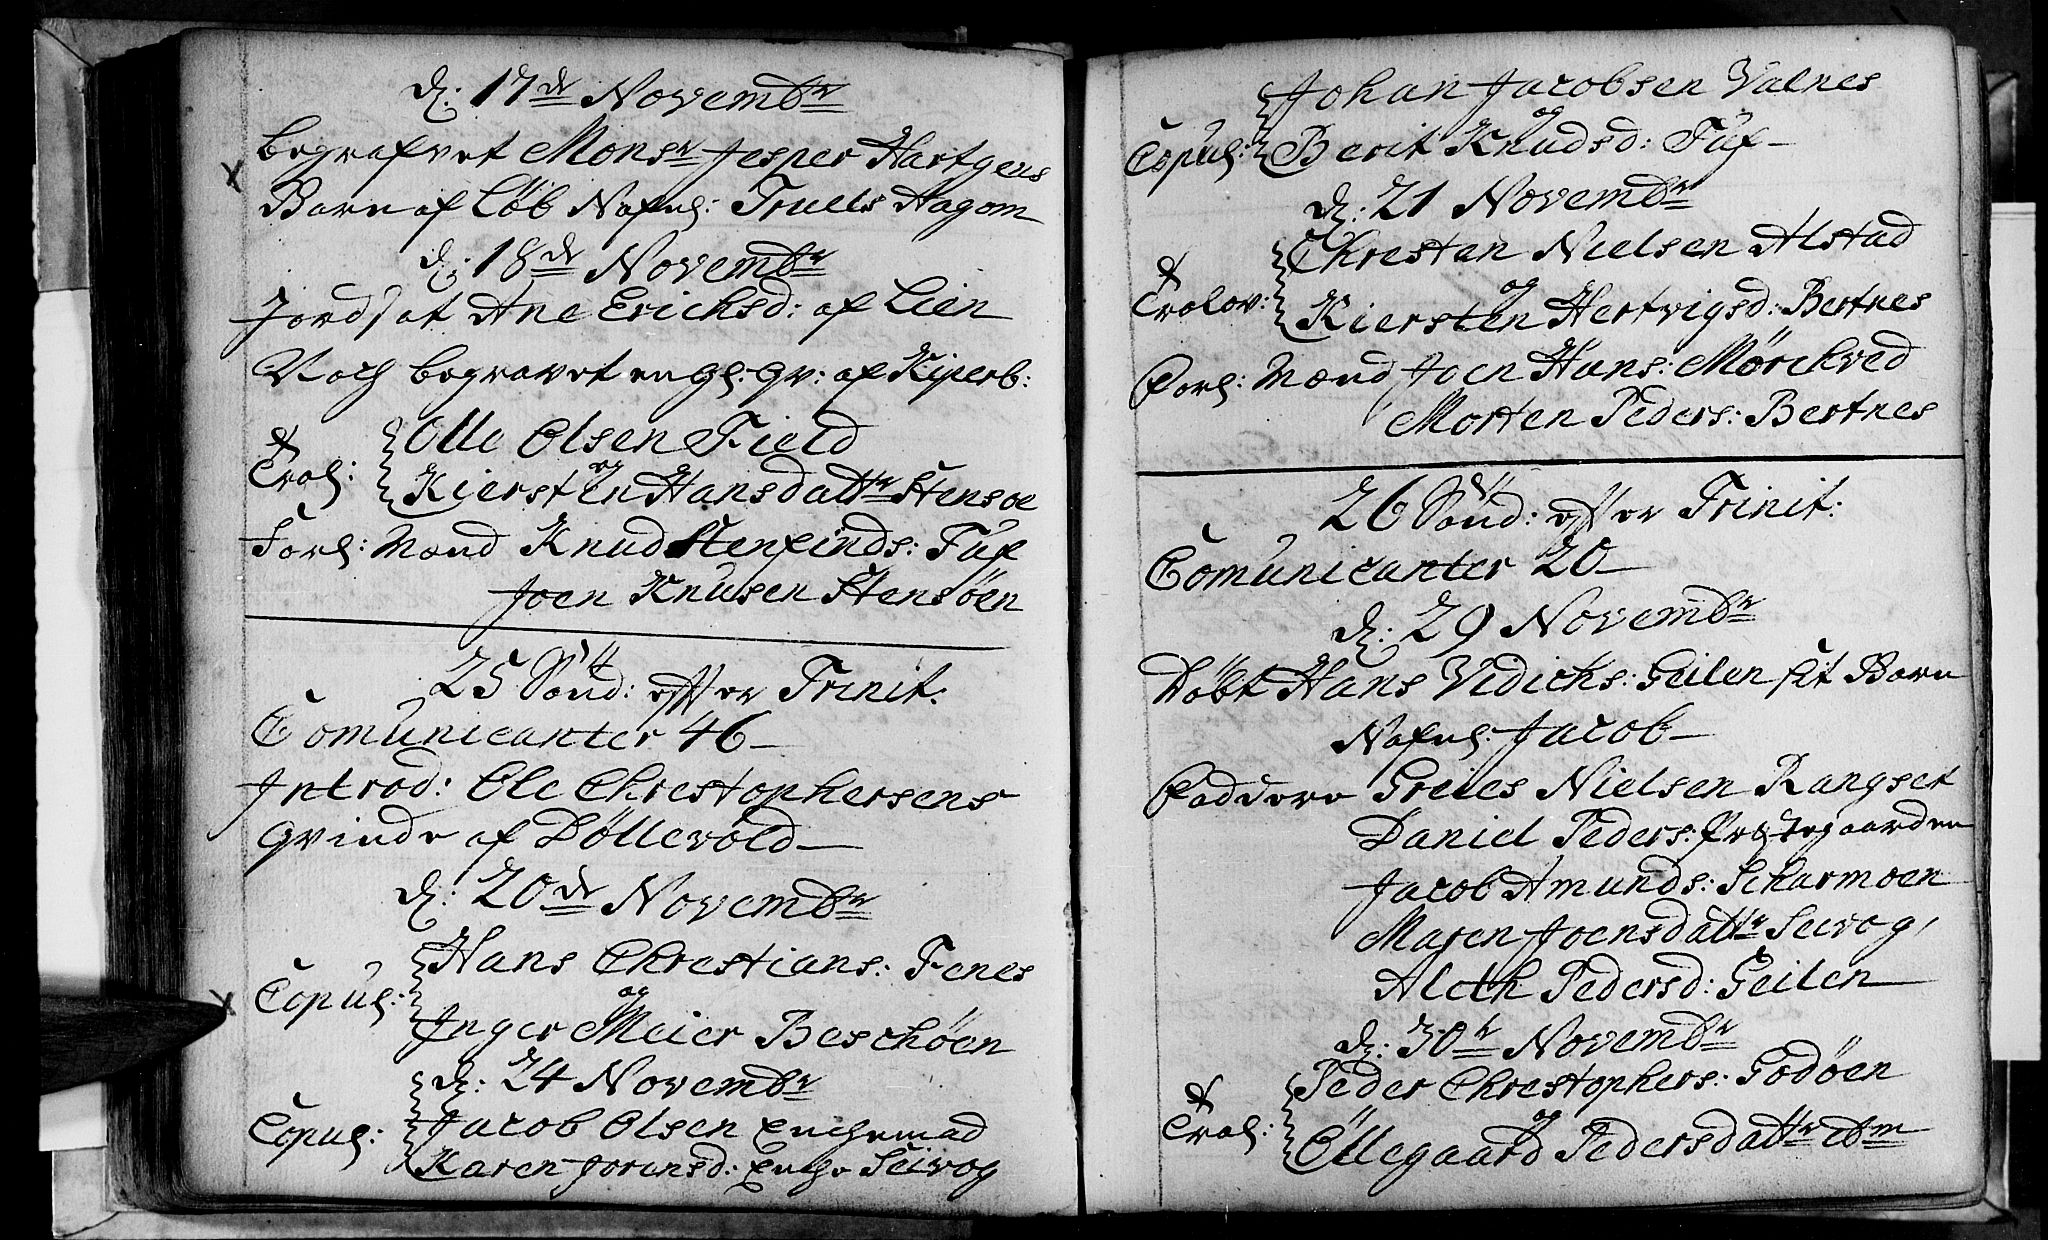 d: 17de Novembr
begrafvet Monsr Jesper Hartgens
Barn af Løb Nafnl: Truels Aagom
d: 18de Novembr
Jordsat Ane Erichsd: af Lien
Noch begravet en gl: qv: af Kiperb:
Trol:
Olle Olsen Field
og
Kiersten Hansdattr Stensoe
Forl: Mænd Knud Stenfinds: Tuf
Joen Knusen Stensöen
25 Sönd: efter Trinit:
Comunicanter 46
Introd: Ole Chrestophersens
qvinde af Döllevold
d: 20de Novembr
Copul:
Hans Chrestians: Fenes
og
Inger Meier Beschöen
d: 24 Novembr
Copul:
Jacob Olsen Enchemad
Karen Jorensd: Enche Seivog
Johan Jacobsen Valnes
og
Copul: Berit Knudsd: Tuf
d: 21 Novembr
Chresten Nielsen Alstad
og
Trolov: Kiersten Hertvigsd: Bertnes
Forl: Mænd Joen Hans: Mörchved
Morten Peders: Bertnes
26 Sönd: efter Trinit:
Comunicanter 20
d: 29 Novembr
Döbt Hans Vidichs: Geilen sit Barn
Nafnl: Jacob
Faddere Greies Nielsen Rangset
Daniel Peders: Prestegaarden
Jacob Amunds: Scharmoen
Maren Joensdattr Seivog
Aleth Pedersd: Geilen
d: 30te Novembr
Peder Chrestophers: Godöen
og
Trol: Ellegaard Pedersdattr ibm